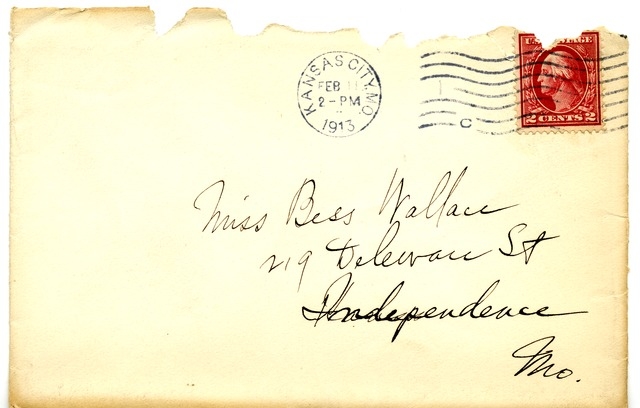 KANSAS CITY, MO.
FEB 11
2-PM
1913
C
U.S. POSTAGE
2 CENTS 2
Miss Bess Wallace
219 Delewar St
Independence
Mo.